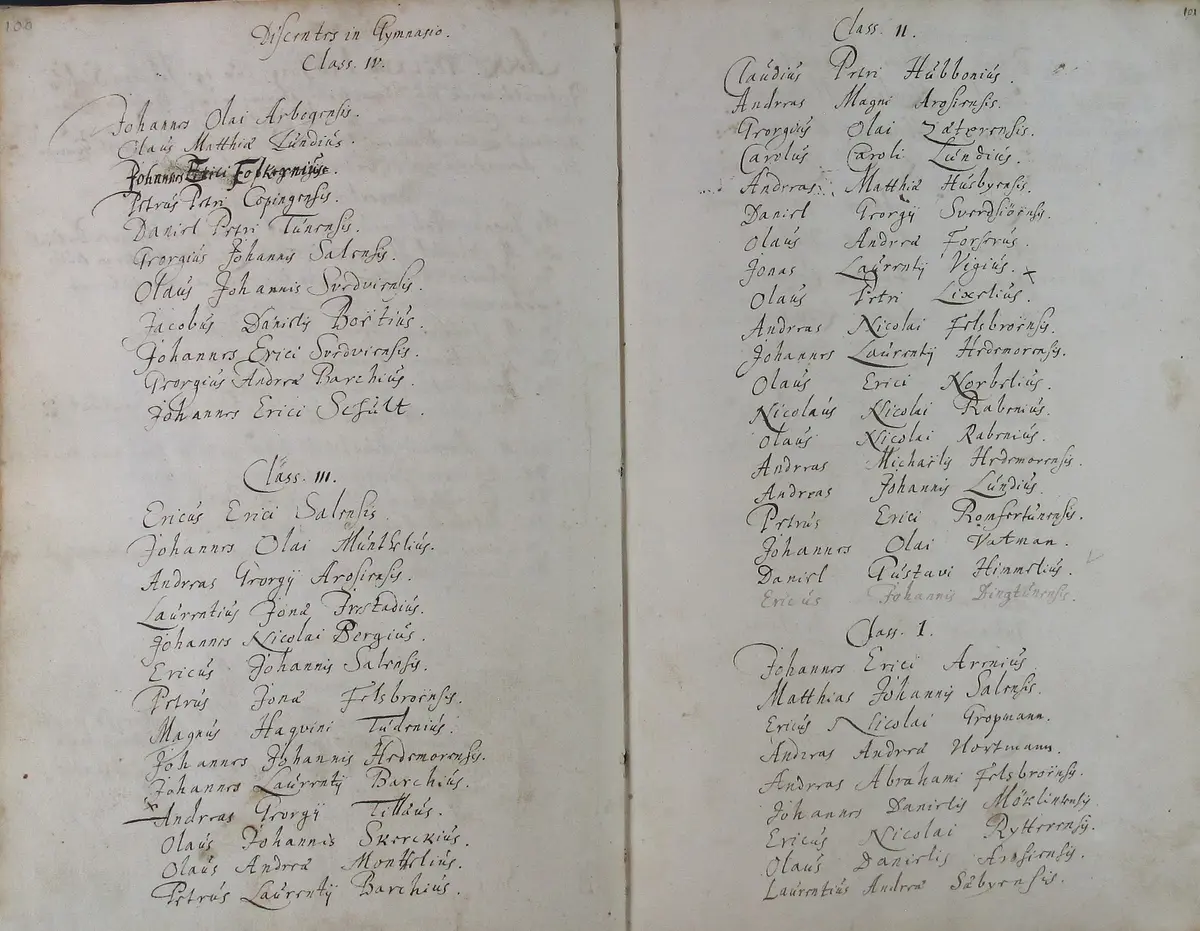 100
Discentes in Gymnasio.
Class. IV.
Johannes Olai Arbogensis.
Olaus Matthiæ Lundius.
Johannes Erici
Petrus Petri Copingensis.
Daniel Petri Tunensis.
Georgius Johannis Salensis.
Olaus Johannis Svedviensis.
Jacobus Danielis Boëtius.
Johannes Erici Svedviensis.
Georgius Andreæ Barchius.
Johannes Erici Schult.
Class. III.
Ericus Erici Salensis
Johannes Olai Munthelius.
Andreas Georgij Arosiensis.
Laurentius Jonæ Prestadius.
Johannes Nicolai Bergius.
Ericus Johannis Salensis.
Petrus Jonæ Felsbroënsis.
Magnus Haqvini Tudenius.
Johannes Johannis Hedemorensis.
Johannes Laurentij Barchius.
Andreas Georgij Tillæus.
Olaus Johannis Skerckius.
Olaus Andreæ Monthelius.
Petrus Laurentij Barchius.
101
Class. II.
Claudius Petri Hubbonius.
Andreas Magni Arosiensis.
Georgius Olai Zætrensis.
Carolus Caroli Lundius.
Andreas Matthiæ Husbyensis.
Daniel Georgij Sverdsiöensis.
Olaus Andreæ Forserus.
Jonas Laurentij Vigius.
Olaus Petri Lixelius.
Andreas Nicolai Felsbroënsis.
Johannes Laurentij Hedemorensis.
Olaus Erici Norbelius.
Nicolaus Nicolai Rabenius.
Olaus Nicolai Rabenius.
Andreas Michaëlis Hedemorensis.
Andreas Johannis Lundius.
Petrus Erici Romfertunensis.
Johannes Olai Vatman.
Daniel Gustavi Himmelius.
Ericus Johannis Dingtunensis.
Class. I.
Johannes Erici Arenius
Matthias Johannis Salensis.
Ericus Nicolai Gropmann.
Andreas Andreæ Hortmann.
Andreas Abrahami Felsbroënsis.
Johannes Danielis Möklintensis
Ericus Nicolai Rytterensis.
Olaus Danielis Arosiensis.
Laurentius Andreæ Sæbyensis.